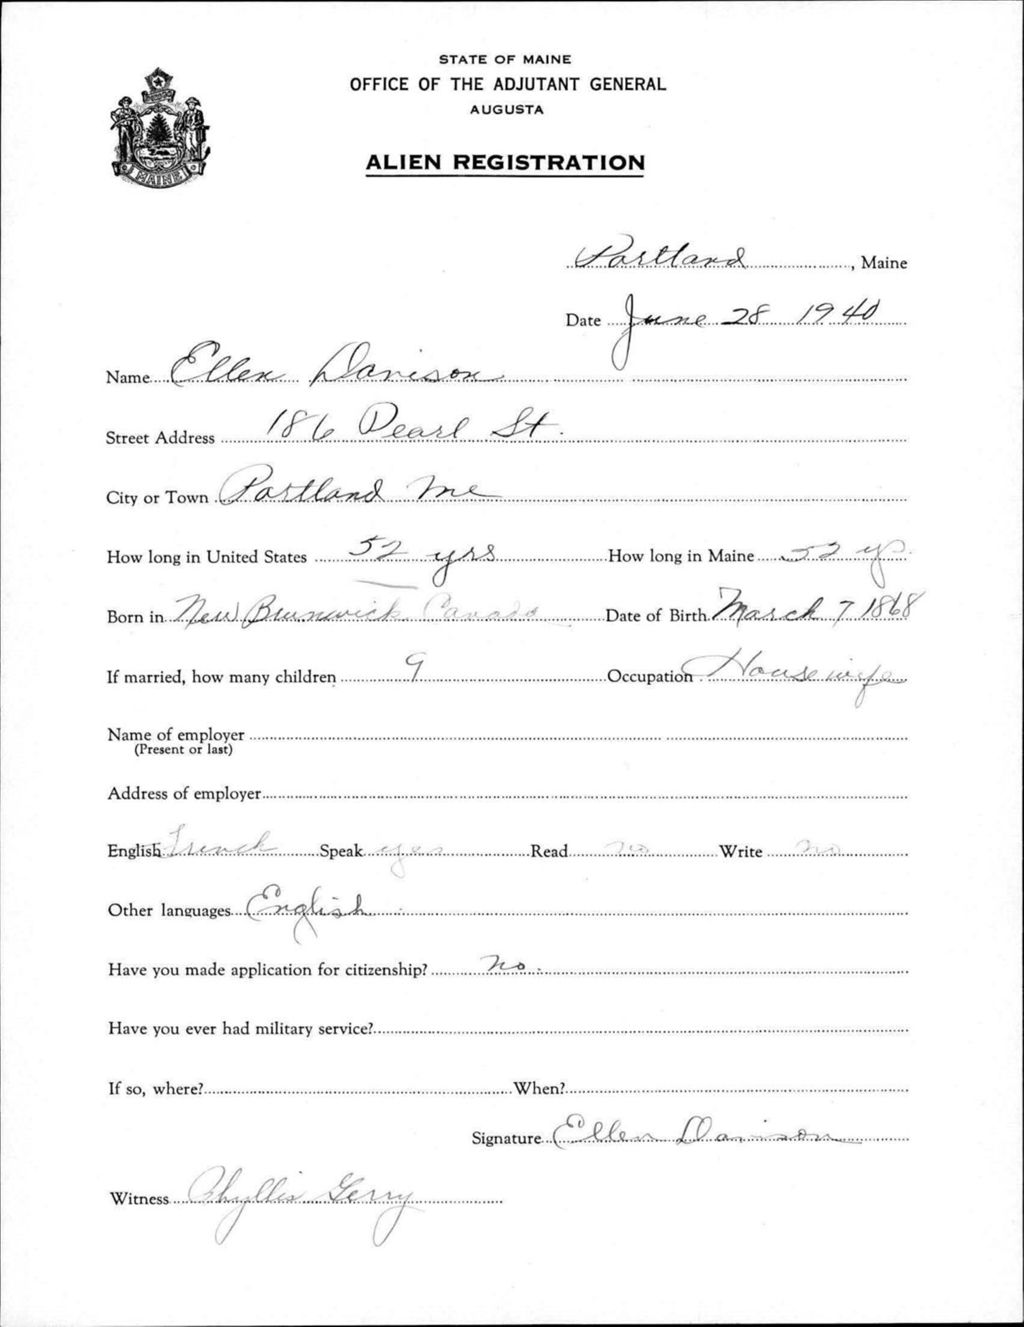 STATE OF MAINE
OFFICE OF THE ADJUTANT GENERAL
AUGUSTA
ALIEN REGISTRATION
MAINE
Portland, Maine
Date June 28 1940
Name Ellen Davison
Street Address 186 Pearl St.
City or Town Portland Me
How long in United States 52 yrs How long in Maine 52 yr
Born in New Brunwick Canada Date of Birth March 7 1868
If married, how many children 9 Occupation Housewife
Name of employer
(Present or last)
Address of employer
English French Speak yes Read no Write no
Other languages English
Have you made application for citizenship? no.
Have you ever had military service?
If so, where? When?
Signature Ellen Davison
Witness Phyllis Gerry